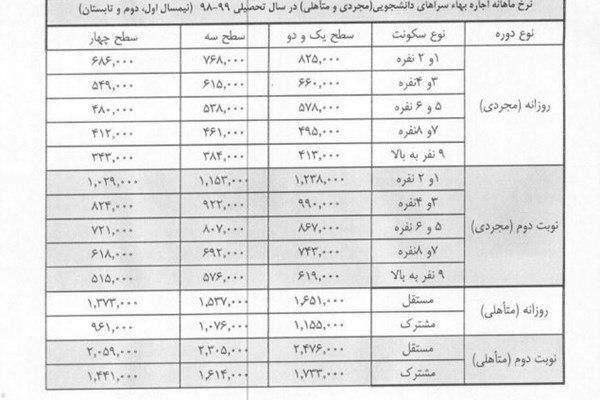 نرخ ماهانه اجاره بهاء سراهای دانشجویی(مجردی و متأهلی) در سال تحصیلی ۹۹-۹۸ (نیمسال اول، دوم و تابستان)
نوع دوره نوع سکونت سطح یک و دو سطح سه سطح چهار
روزانه (مجردی) ۱و ۲ نفره ۸۲۵,۰۰۰ ۷۶۸,۰۰۰ ۶۸۶,۰۰۰
۳و ۴نفره ۶۶۰,۰۰۰ ۶۱۵,۰۰۰ ۵۴۹,۰۰۰
۵ و ۶ نفره ۵۷۸,۰۰۰ ۵۳۸,۰۰۰ ۴۸۰,۰۰۰
۷و ۸نفره ۴۹۵,۰۰۰ ۴۶۱,۰۰۰ ۴۱۲,۰۰۰
۹ نفر به بالا ۴۱۳,۰۰۰ ۳۸۴,۰۰۰ ۳۴۳,۰۰۰
نوبت دوم (مجردی) ۱و ۲ نفره ۱,۲۳۸,۰۰۰ ۱,۱۵۳,۰۰۰ ۱,۰۲۹,۰۰۰
۳و ۴نفره ۹۹۰,۰۰۰ ۹۲۲,۰۰۰ ۸۲۴,۰۰۰
۵ و ۶ نفره ۸۶۷,۰۰۰ ۸۰۷,۰۰۰ ۷۲۱,۰۰۰
۷و ۸نفره ۷۴۳,۰۰۰ ۶۹۲,۰۰۰ ۶۱۸,۰۰۰
۹ نفر به بالا ۶۱۹,۰۰۰ ۵۷۶,۰۰۰ ۵۱۵,۰۰۰
روزانه (متأهلی) مستقل ۱,۶۵۱,۰۰۰ ۱,۵۳۷,۰۰۰ ۱,۳۷۳,۰۰۰
مشترک ۱,۱۵۵,۰۰۰ ۱,۰۷۶,۰۰۰ ۹۶۱,۰۰۰
نوبت دوم (متأهلی) مستقل ۲,۴۷۶,۰۰۰ ۲,۳۰۵,۰۰۰ ۲,۰۵۹,۰۰۰
مشترک ۱,۷۳۳,۰۰۰ ۱,۶۱۴,۰۰۰ ۱,۴۴۱,۰۰۰